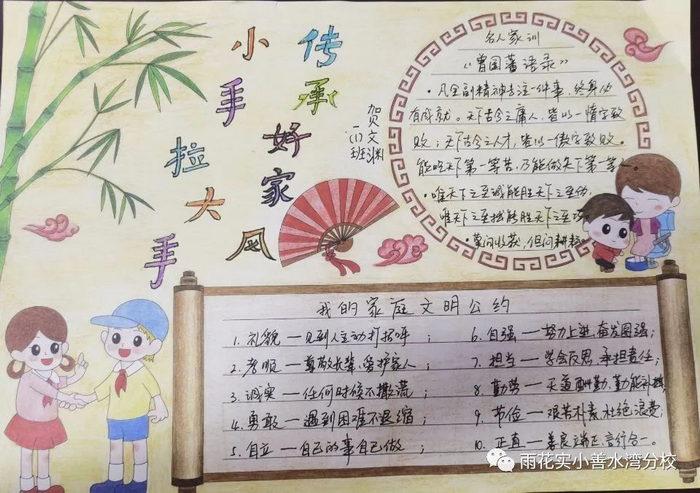 小手拉大手
传承好家风
贺文渊
(1)班
名人家训
《曾国藩语录》
·凡至副精神专注一件事,终身必
有成就。天下古今之庸人,皆以一惰字致
败;天下古今之人才,皆以一傲字致败。
能吃天下第一等苦,乃能做天下第一等
·唯天下之至诚能胜天下之至伪,
唯天下之至拙能胜天下之至巧
·莫问收获,但问耕耘
我的家庭文明公约
1.礼貌—见到人主动打招呼;
2.孝顺—尊敬长辈,爱护家人;
3.诚实—任何时候不撒谎;
4.勇敢—遇到困难不退缩;
5.自立—自己的事自己做;
6.自强—努力上进,奋发图强;
7.担当—学会反思,承担责任;
8.勤劳—天道酬勤,勤能补拙
9.节俭—艰苦朴素,杜绝浪费;
10.正直—善良端正,言行合一。
雨花实小善水湾分校